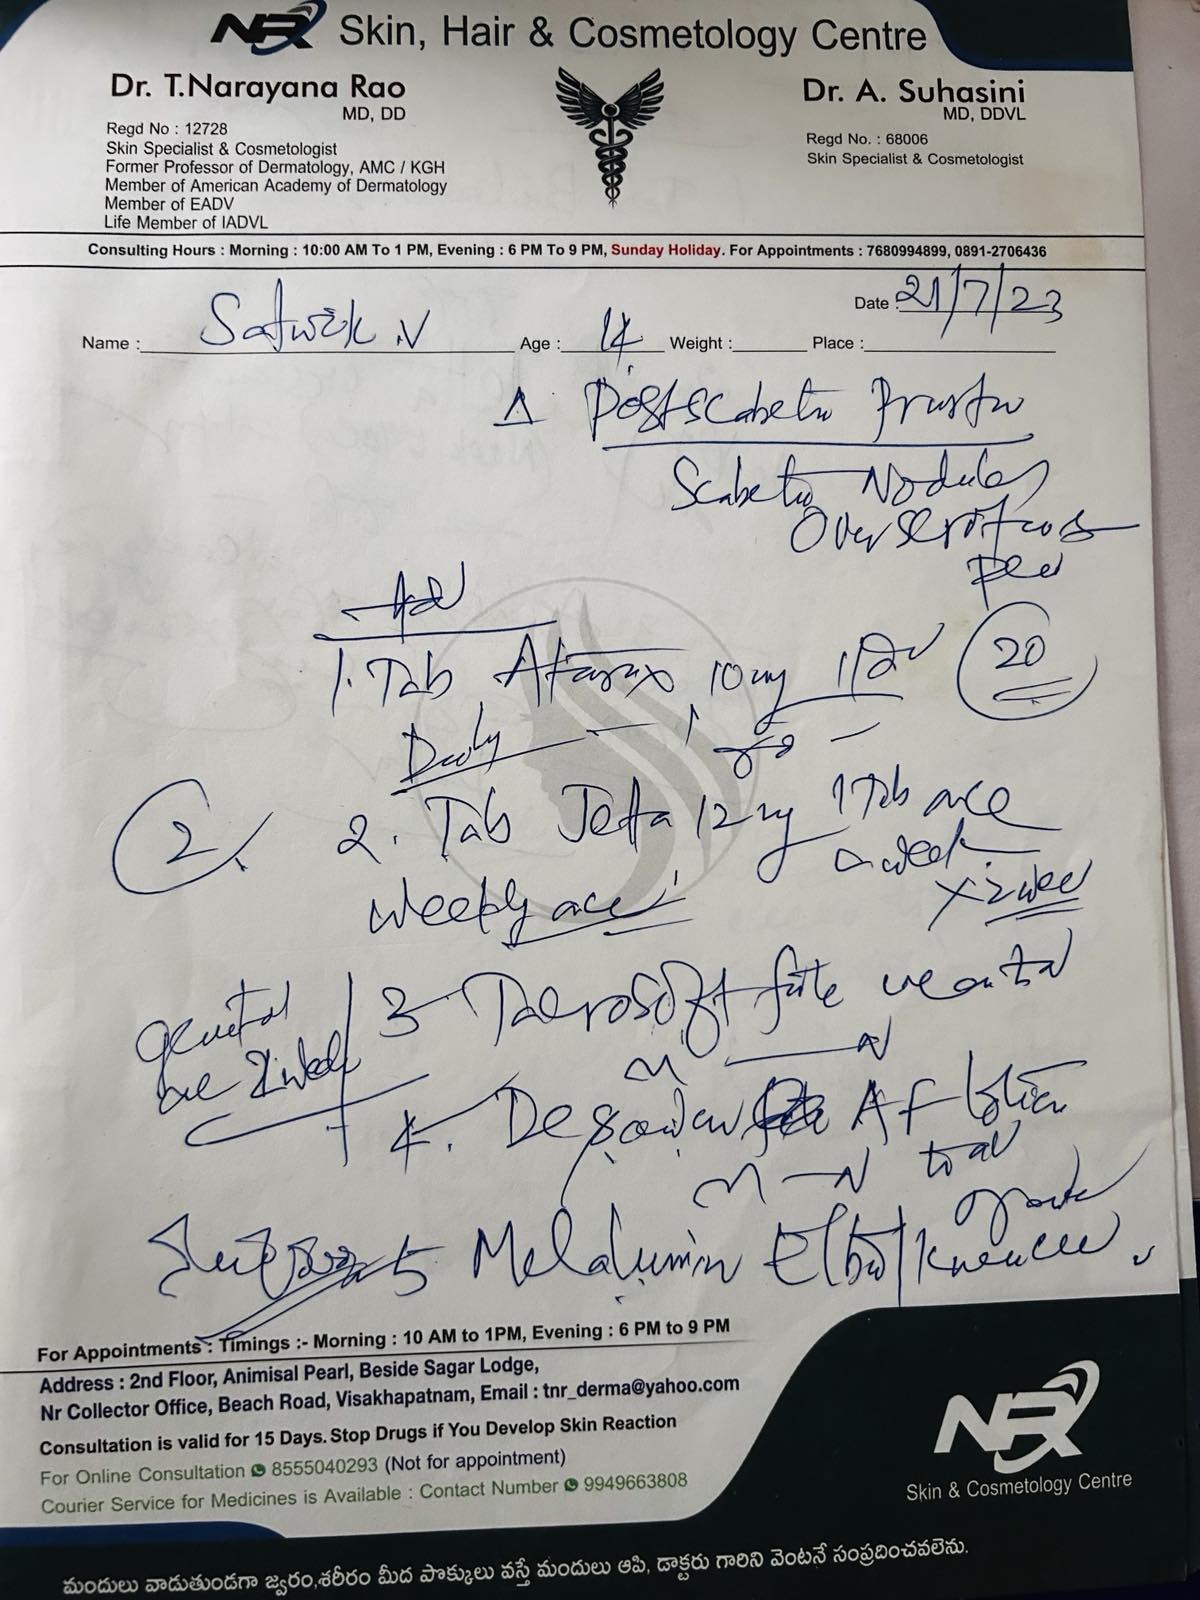 NR Skin, Hair & Cosmetology Centre
Dr. T.Narayana Rao
MD, DD
Regd No : 12728
Skin Specialist & Cosmetologist
Former Professor of Dermatology, AMC / KGH
Member of American Academy of Dermatology
Member of EADV
Life Member of IADVL
Dr. A. Suhasini
MD, DDVL
Regd No. : 68006
Skin Specialist & Cosmetologist
Consulting Hours : Morning : 10:00 AM To 1 PM, Evening : 6 PM To 9 PM, Sunday Holiday. For Appointments : 7680994899, 0891-2706436
Date : 21/7/23
Name : Satwik .V Age : 14 Weight : Place :
Δ Postscabetic
Scabetic Nodules
Over
Adv
1. Tab Atarax 10mg 20
Daily
2 2. Tab 12mg 1 Tab once
a week
weekly once x 2 wee
genital 3 forte
2 week
4. AF lotion
5 Melalumin Elbow/
For Appointments : Timings :- Morning : 10 AM to 1PM, Evening : 6 PM to 9 PM
Address : 2nd Floor, Animisal Pearl, Beside Sagar Lodge,
Nr Collector Office, Beach Road, Visakhapatnam, Email : tnr_derma@yahoo.com
Consultation is valid for 15 Days. Stop Drugs if You Develop Skin Reaction
For Online Consultation 8555040293 (Not for appointment)
Courier Service for Medicines is Available : Contact Number 9949663808
NR
Skin & Cosmetology Centre
మందులు వాడుతుండగా జ్వరం,శరీరం మీద పొక్కులు వస్తే మందులు ఆపి, డాక్టరు గారిని వెంటనే సంప్రదించవలెను.